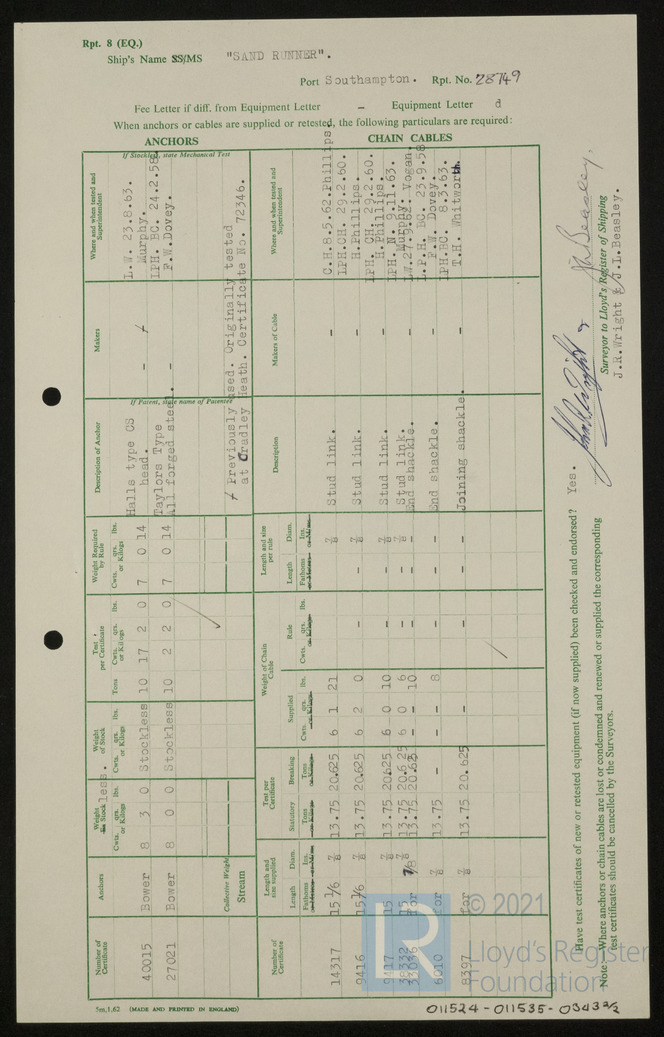 Rpt. 8 (EQ.)
Ship's Name SS/MS "SAND RUNNER".
Port Southampton. Rpt. No. 28749
Fee Letter if diff. from Equipment Letter – Equipment Letter d
When anchors or cables are supplied or retested, the following particulars are required:
ANCHORS
Number of Certificate
Anchors
Weight Ex Stock less.
Cwts. qrs. lbs. or Kilogs
Weight of Stock
Cwts. qrs. lbs. or Kilogs
Test per Certificate
Tons Cwts. qrs. lbs. or Kilogs
Weight Required by Rule
Cwts. qrs. lbs. or Kilogs
Description of Anchor
If Patent, state name of Patentee
Makers
Where and when tested and Superintendent
If Stockless, state Mechanical Test
40015 Bower 8 3 0 Stockless 10 17 2 0 7 0 14 Halls type CS head. – / L.W. 23.8.63. Murphy.
27021 Bower 8 0 0 Stockless 10 2 2 0 7 0 14 Taylors Type All forged steel. – LPH. BC. 24.2.58. F.W.Dovey.
Collective Weight
Stream
/ Previously used. Originally tested
at Cradley Heath. Certificate No. 72346.
CHAIN CABLES
Number of Certificate
Length and size supplied
Length Diam.
Fathoms Ins.
Test per Certificate
Statutory Breaking
Tons Tons
Weight of Chain Cable
Supplied Rule
Cwts. qrs. lbs. Cwts. qrs. lbs.
Length and size per rule
Length Diam.
Fathoms Ins.
Description
Makers of Cable
Where and when tested and Superintendent
14317 15 1/6 7/8 13.75 20.625 6 1 21 – – 7/8 Stud link. – C.H.8.5.62.Phillips.
9416 15 1/6 7/8 13.75 20.625 6 2 0 – – 7/8 Stud link. – LPH.CH. 29.2.60. H.Phillips.
9417 15 7/8 13.75 20.625 6 0 10 – – 7/8 Stud link. – LPH. CH. 29.2.60. H.Phillips.
15 7/8 13.75 20.625 6 0 6 – – 7/8 Stud link. – LPH. N. 9.11.63. Murphy.
for 7/8 13.75 20.625 – – 10 – – – End shackle. – LW.27.9.62. Vogan.
6010 for 7/8 13.75 – – – 8 – – – End shackle. – L.P.H. BC. 23.9.58 F.W. Dovey.
8397 for 7/8 13.75 20.625 – – – – Joining shackle. – LPH.BC. 8.3.63. T.H. Whitworth.
Have test certificates of new or retested equipment (if now supplied) been checked and endorsed? Yes.
Note :—Where anchors or chain cables are lost or condemned and renewed or supplied the corresponding
Test certificates should be cancelled by the Surveyors.
& J.L.Beasley.
Surveyor to Lloyd's Register of Shipping
J.R.Wright & J.L.Beasley.
5m,1,62 (MADE AND PRINTED IN ENGLAND)
© 2021
Lloyd's Register
Foundation
011524-011535-0343 2/2